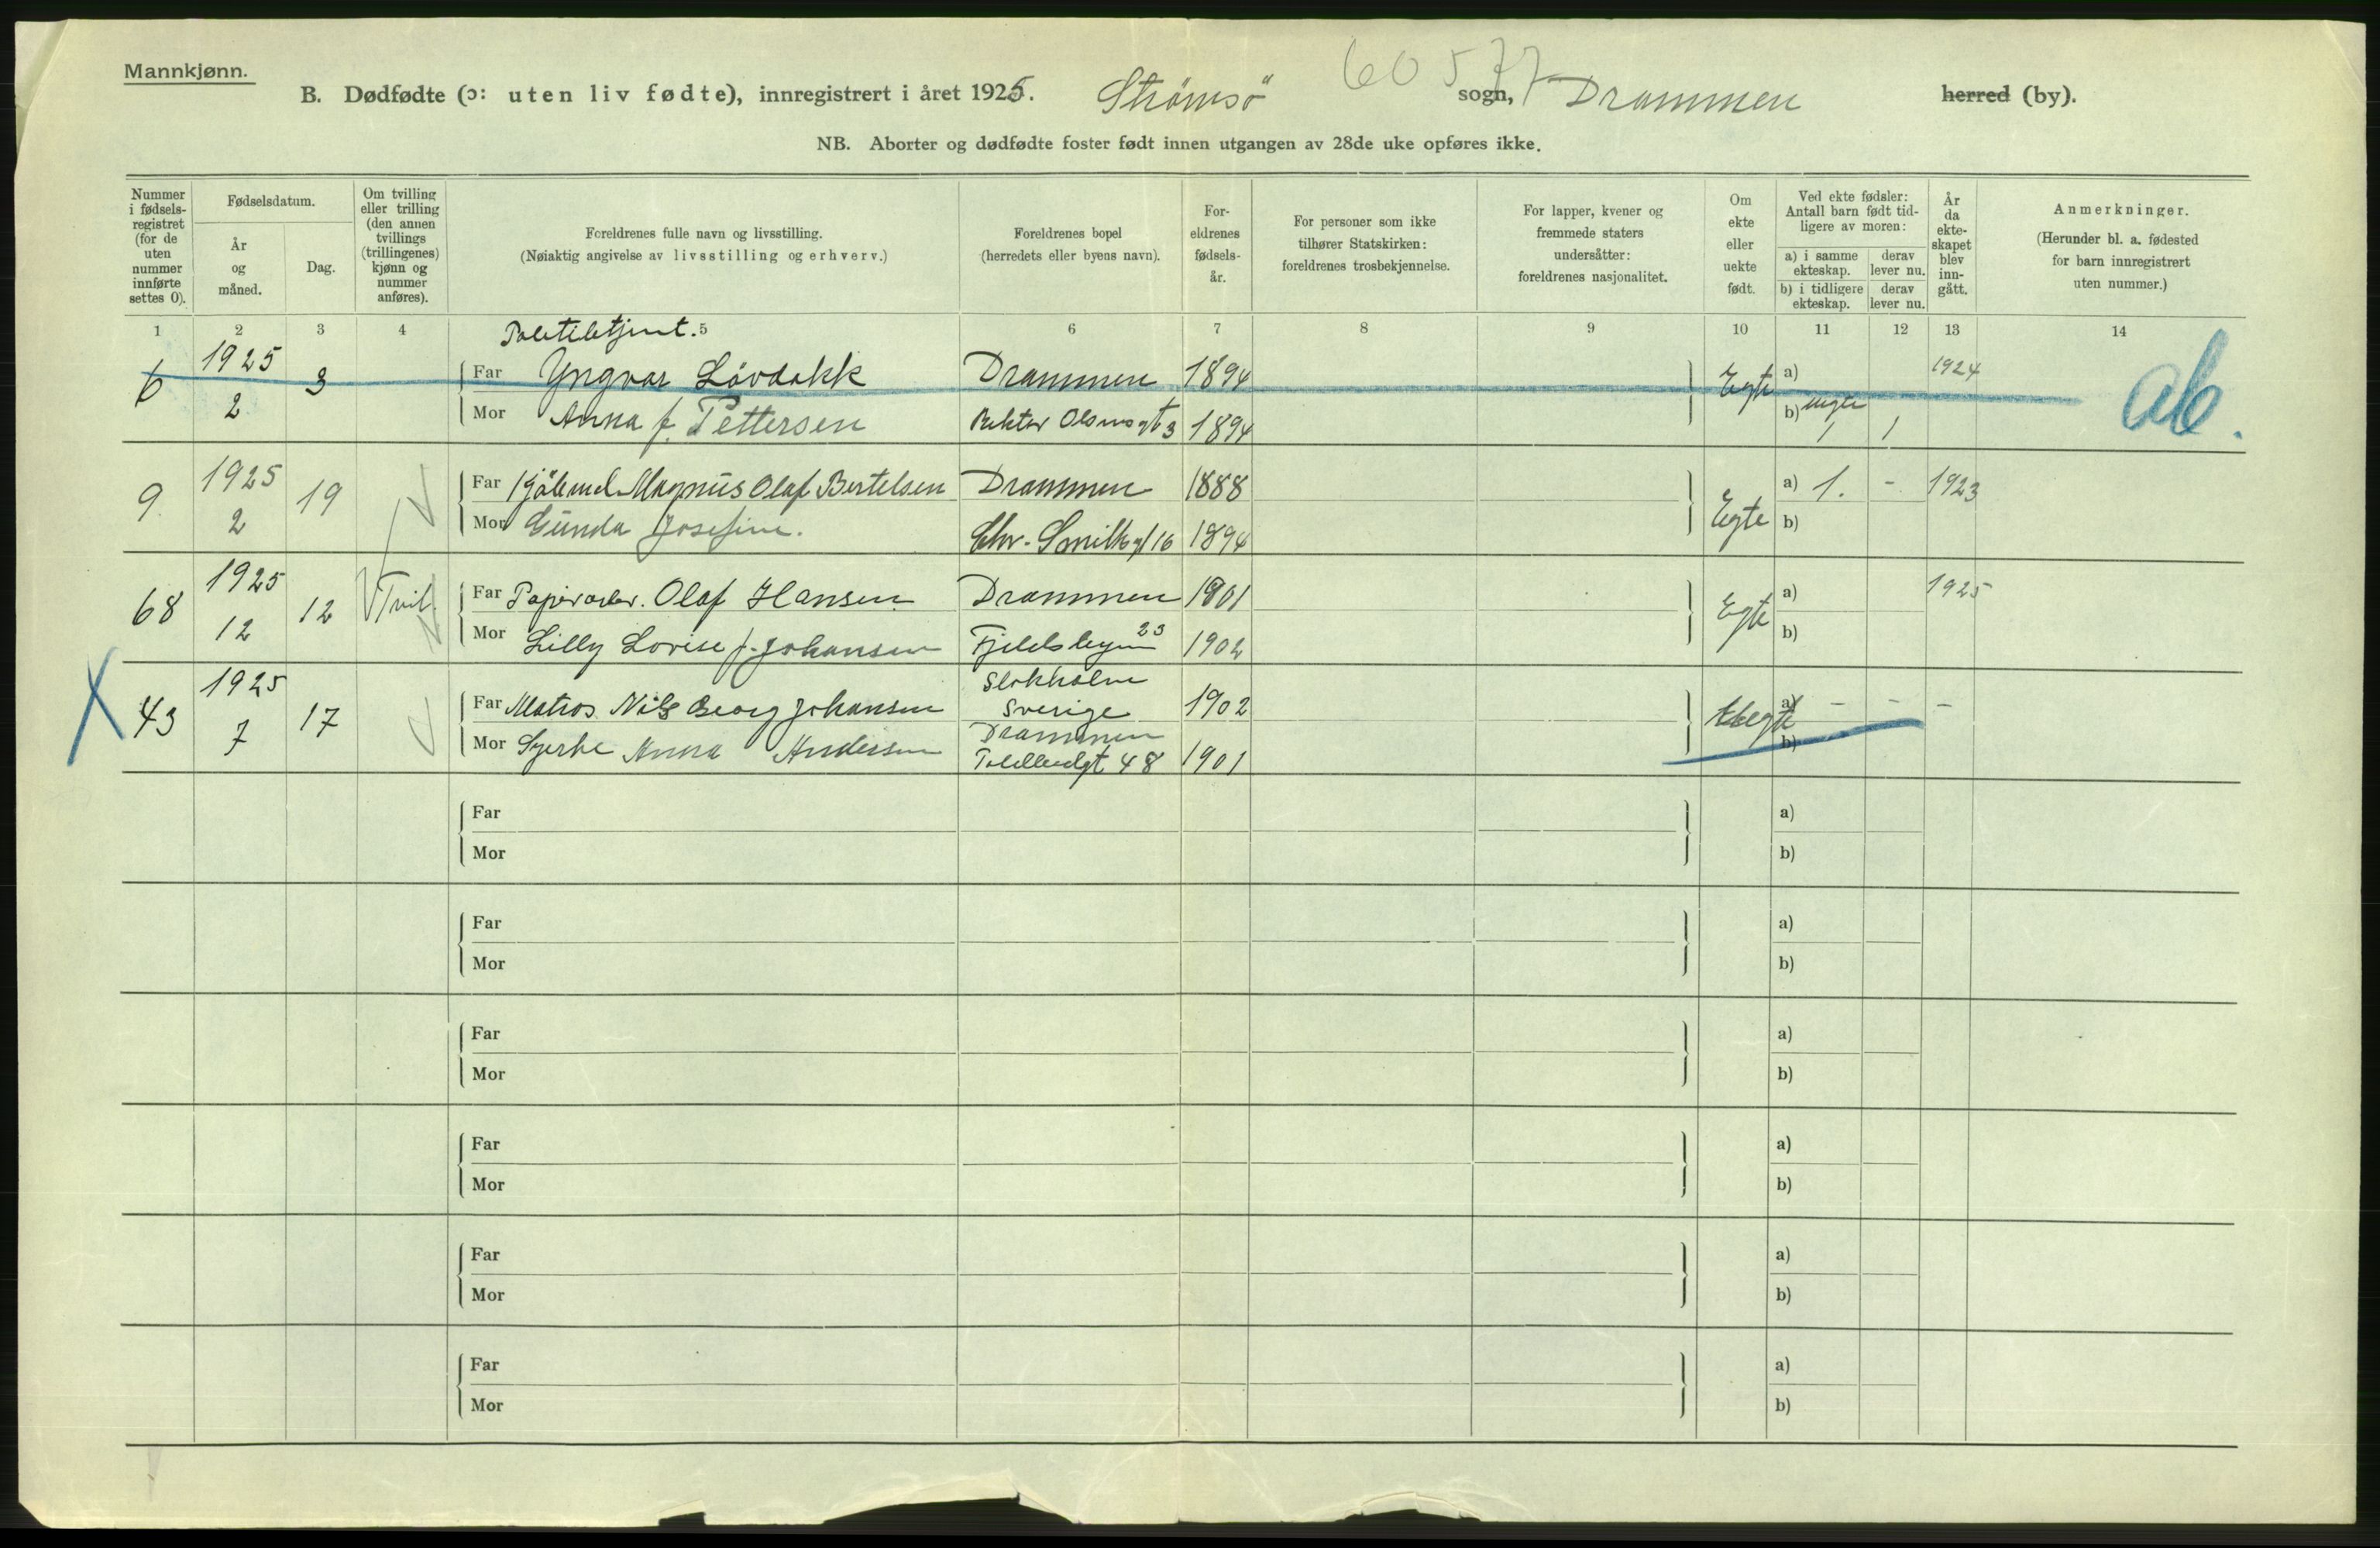 60577
Mannkjønn.
B. Dødfødte (ɔ: uten liv fødte), innregistrert i året 1925. Strömsö sogn, Drammen herred (by).
NB. Aborter og dødfødte foster født innen utgangen av 28de uke opføres ikke.
Nummer i fødsels-registret (for de uten nummer innførte settes 0).
Fødselsdatum.
År og måned.
Dag.
Om tvilling eller trilling (den annen tvillings (trillingenes) kjønn og nummer anføres).
Foreldrenes fulle navn og livsstilling. (Nøiaktig angivelse av livsstilling og erhverv.)
Foreldrenes bopel (herredets eller byens navn).
For-eldrenes fødsels-år.
For personer som ikke tilhører Statskirken: foreldrenes trosbekjennelse.
For lapper, kvener og fremmede staters undersåtter: foreldrenes nasjonalitet.
Om ekte eller uekte født.
Ved ekte fødsler: Antall barn født tid-ligere av moren:
a) i samme ekteskap. derav lever nu.
b) i tidligere ekteskap. derav lever nu.
År da ekte-skapet blev inn-gått.
Anmerkninger. (Herunder bl. a. fødested for barn innregistrert uten nummer.)
1 2 3 4 5 6 7 8 9 10 11 12 13 14
6 1925 2 3
Far Yngvar Lövdokk Drammen 1894 Egte a) 1924
Mor Anna f. Pettersen Rektor Olsens gt 3 1894 b) uegte 1 1
ab.
9 1925 2 19
Far Magnus Olaf Bertelsen Drammen 1888 Egte a) 1. - 1923
Mor Gunda Josefine. Chr. Smiths gt 16 1894 b)
68 1925 12 12 Tvil.
Far Papirarb. Olaf Hansen Drammen 1901 Egte a) 1925
Mor Lilly Lovise f. Johansen 23 1902 b)
X 43 1925 7 17
Far Matros Nils Georg Johansen Stokholm Sverige 1902 Uegte a) - - -
Mor Anna Andersen Drammen 48 1901 b)
Far a)
Mor b)
Far a)
Mor b)
Far a)
Mor b)
Far a)
Mor b)
Far a)
Mor b)
Far a)
Mor b)